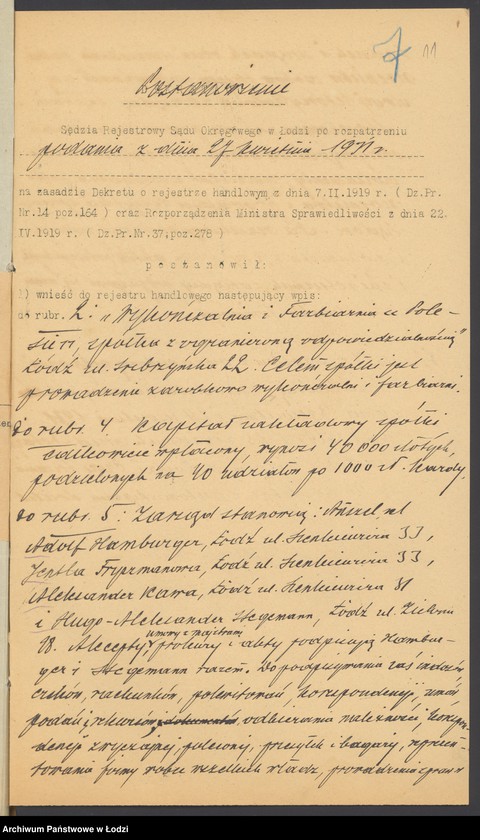 7 11
Postanowienie
Sędzia Rejestrowy Sądu Okręgowego w Łodzi po rozpatrzeniu
podania z dnia 27 kwietnia 1931 r.
na zasadzie Dekretu o rejestrze handlowym, z dnia 7.II.1919 r. ( Dz.Pr.
Nr.14 poz.164 ) oraz Rozporządzenia Ministra Sprawiedliwości z dnia 22.
IV.1919 r. ( Dz.Pr.Nr.37,poz.278 )
p o s t a n o w i ł :
1) wnieść do rejestru handlowego następujący wpis:
do rubr. 2: „Wykończalnia i Farbiarnia
spółka z ograniczoną odpowiedzialnością"
Łódź ul. Srebrzyńska 22. Celem spółki jest
prowadzenie zarobkowo wykończalni i farbiarni.
Do rubr. 4. Kapitał zakładowy spółki
całkowicie wpłacony, wynosi 40 000 złotych,
podzielonych na 40 udziałów po 1000 zł. każdy.
Do rubr. 5: Zarząd stanowią:
Adolf Hamburger, Łódź ul. Sienkiewicza 33,
Fryszmanowa, Łódź ul. Sienkiewicza 33,
Aleksander Kawa, Łódź ul. Sienkiewicza
i Hugo-Aleksander Stegemann, Łódź ul. Zielona
18. Akcepty, umowy z majstrami, prokury i akty podpisują Hambur-
ger i Stegemann razem. Do podpisywania zaś
czeków, rachunków, pokwitowań, korespondencji,
podań, odbierania należności, korespon-
dencji zwyczajnej, poleconej, przesyłek i bagaży, reprezen-
towania firmy wobec wszelkich władz, prowadzenia spraw
Archiwum Państwowe w Łodzi